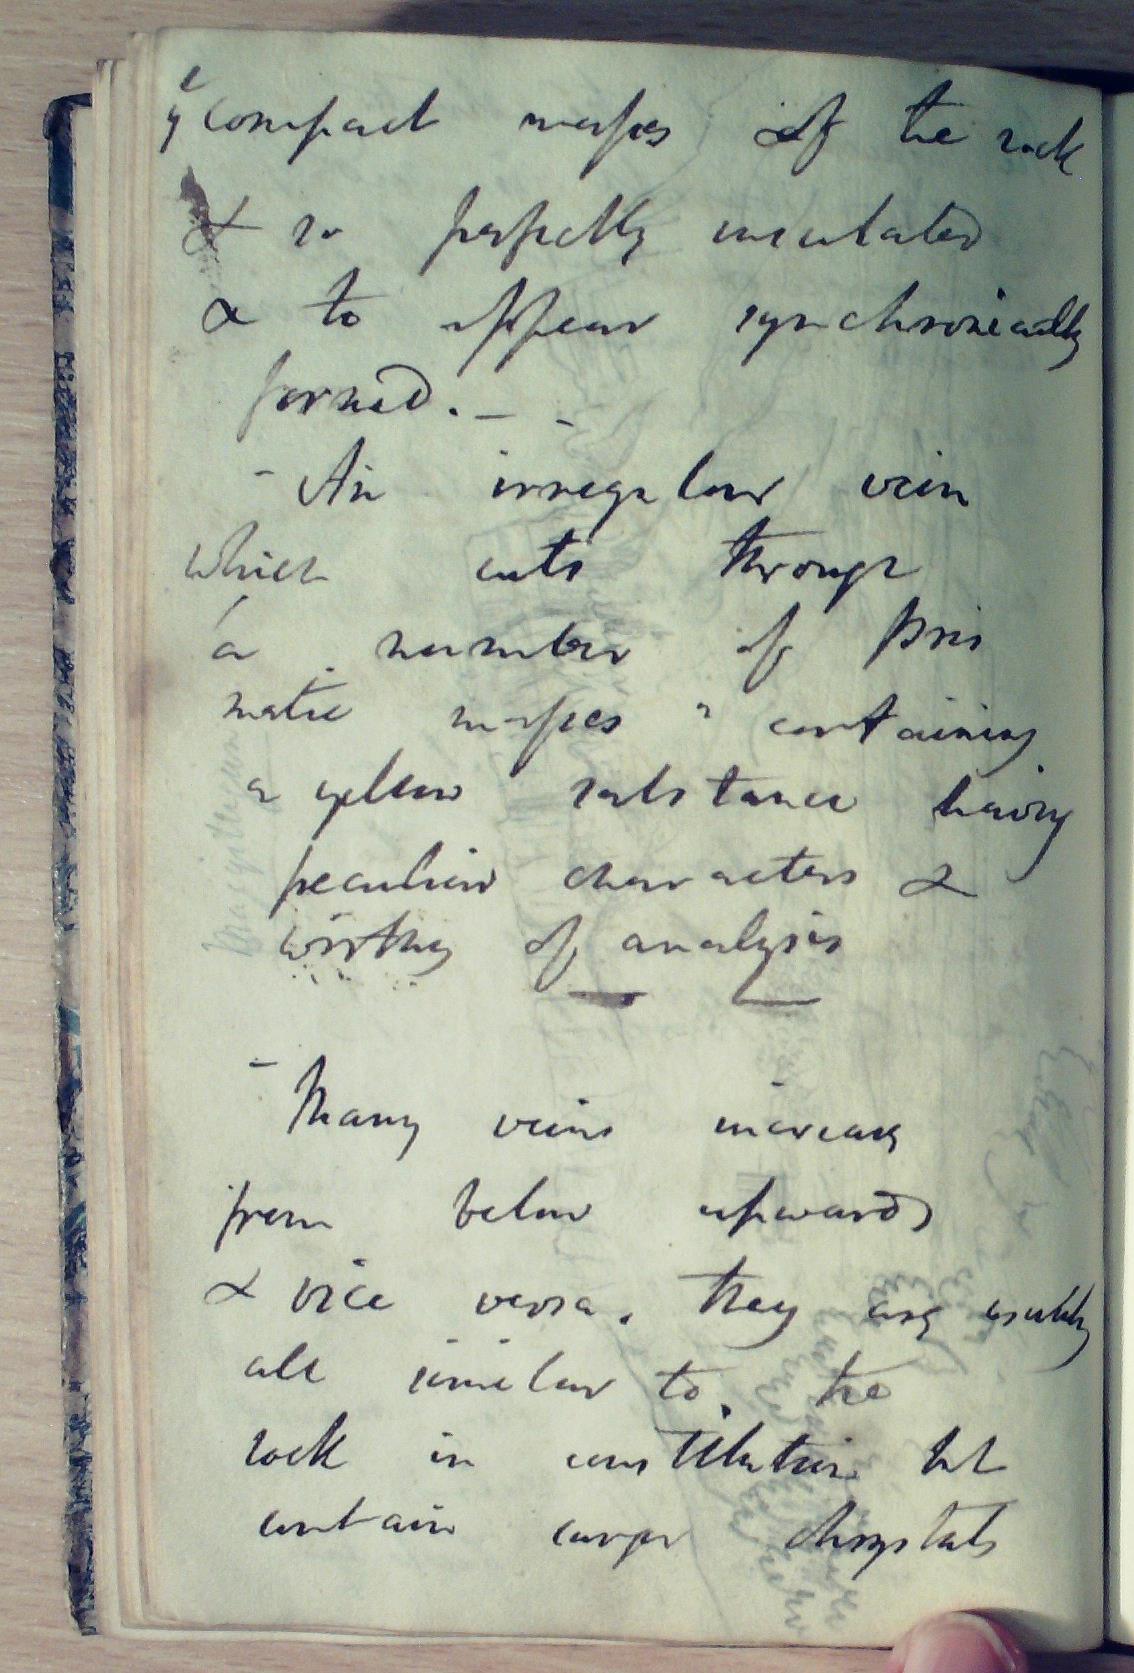 ye compact masses of the rock
& so perfectly insulated
as to appear synchronically
formed. _ -
- An irregular vein
which cuts through
a number of pris
matic masses containing
a yellow substance having
peculiar characters &
worthy of analysis
- Many veins increase
from below upwards
& vice versa. They are usually
all similar to the
rock in constitution but
contain larger chrystals